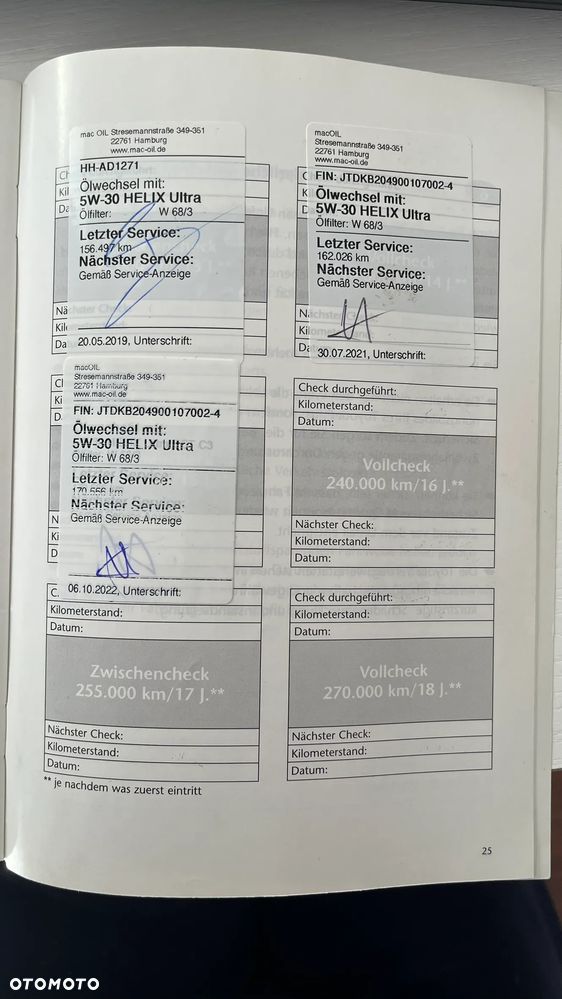 mac OIL Stresemannstraße 349-351
22761 Hamburg
www.mac-oil.de
HH-AD1271
Ölwechsel mit:
5W-30 HELIX Ultra
Ölfilter: W 68/3
Letzter Service:
156.497 km
Nächster Service:
Gemäß Service-Anzeige
20.05.2019, Unterschrift:
macOIL
Stresemannstraße 349-351
22761 Hamburg
www.mac-oil.de
FIN: JTDKB204900107002-4
Ölwechsel mit:
5W-30 HELIX Ultra
Ölfilter: W 68/3
Letzter Service:
162.026 km
Nächster Service:
Gemäß Service-Anzeige
30.07.2021, Unterschrift:
macOIL
Stresemannstraße 349-351
22761 Hamburg
www.mac-oil.de
FIN: JTDKB204900107002-4
Ölwechsel mit:
5W-30 HELIX Ultra
Ölfilter: W 68/3
Letzter Service:
170.556 km
Nächster Service:
Gemäß Service-Anzeige
06.10.2022, Unterschrift:
Check durchgeführt:
Kilometerstand:
Datum:
Vollcheck
240.000 km/16 J.**
Nächster Check:
Kilometerstand:
Datum:
Kilometerstand:
Datum:
Zwischencheck
255.000 km/17 J.**
Nächster Check:
Kilometerstand:
Datum:
Check durchgeführt:
Kilometerstand:
Datum:
Vollcheck
270.000 km/18 J.**
Nächster Check:
Kilometerstand:
Datum:
** je nachdem was zuerst eintritt
25
OTOMOTO